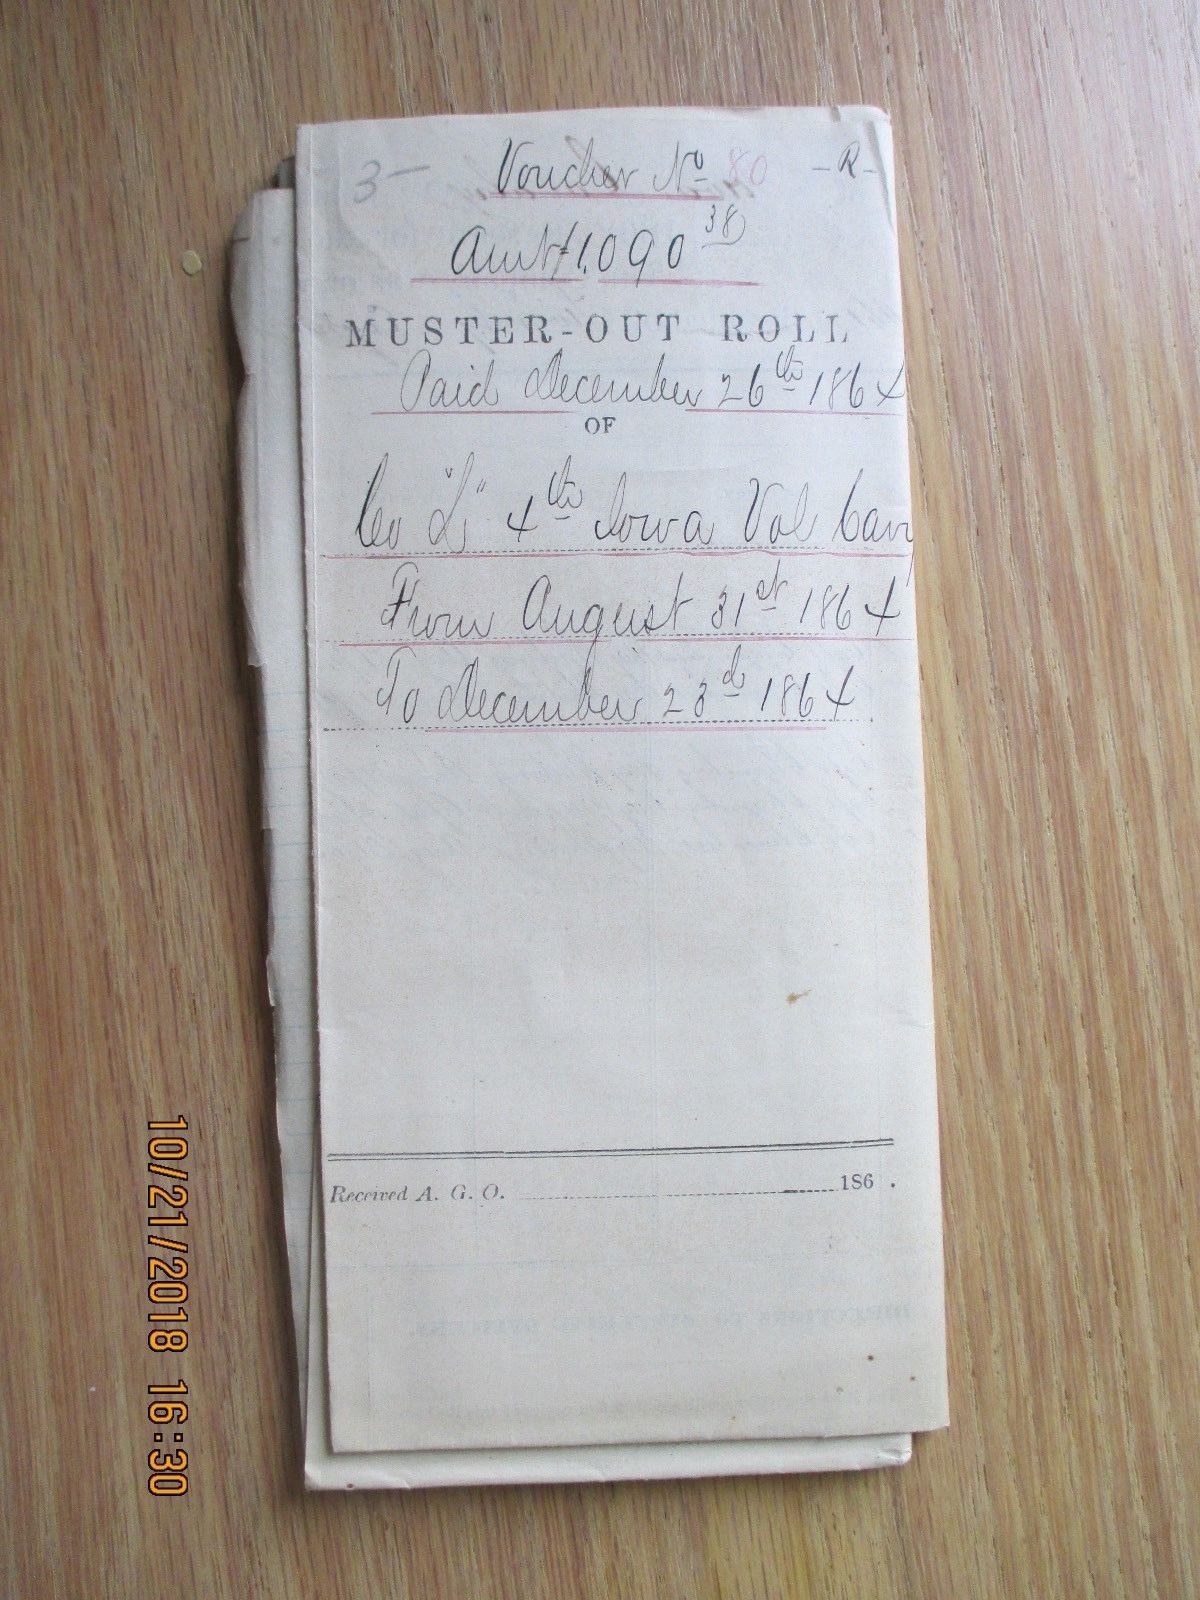 3 — Voucher No 80 - R -
Amt $1,090 38
MUSTER-OUT ROLL
Paid December 26th 1864
OF
Co "L" 4th Iowa Vol Cavy
From August 31st 1864
To December 23d 1864
Received A. G. O. 186 .
10/21/2018 16:30